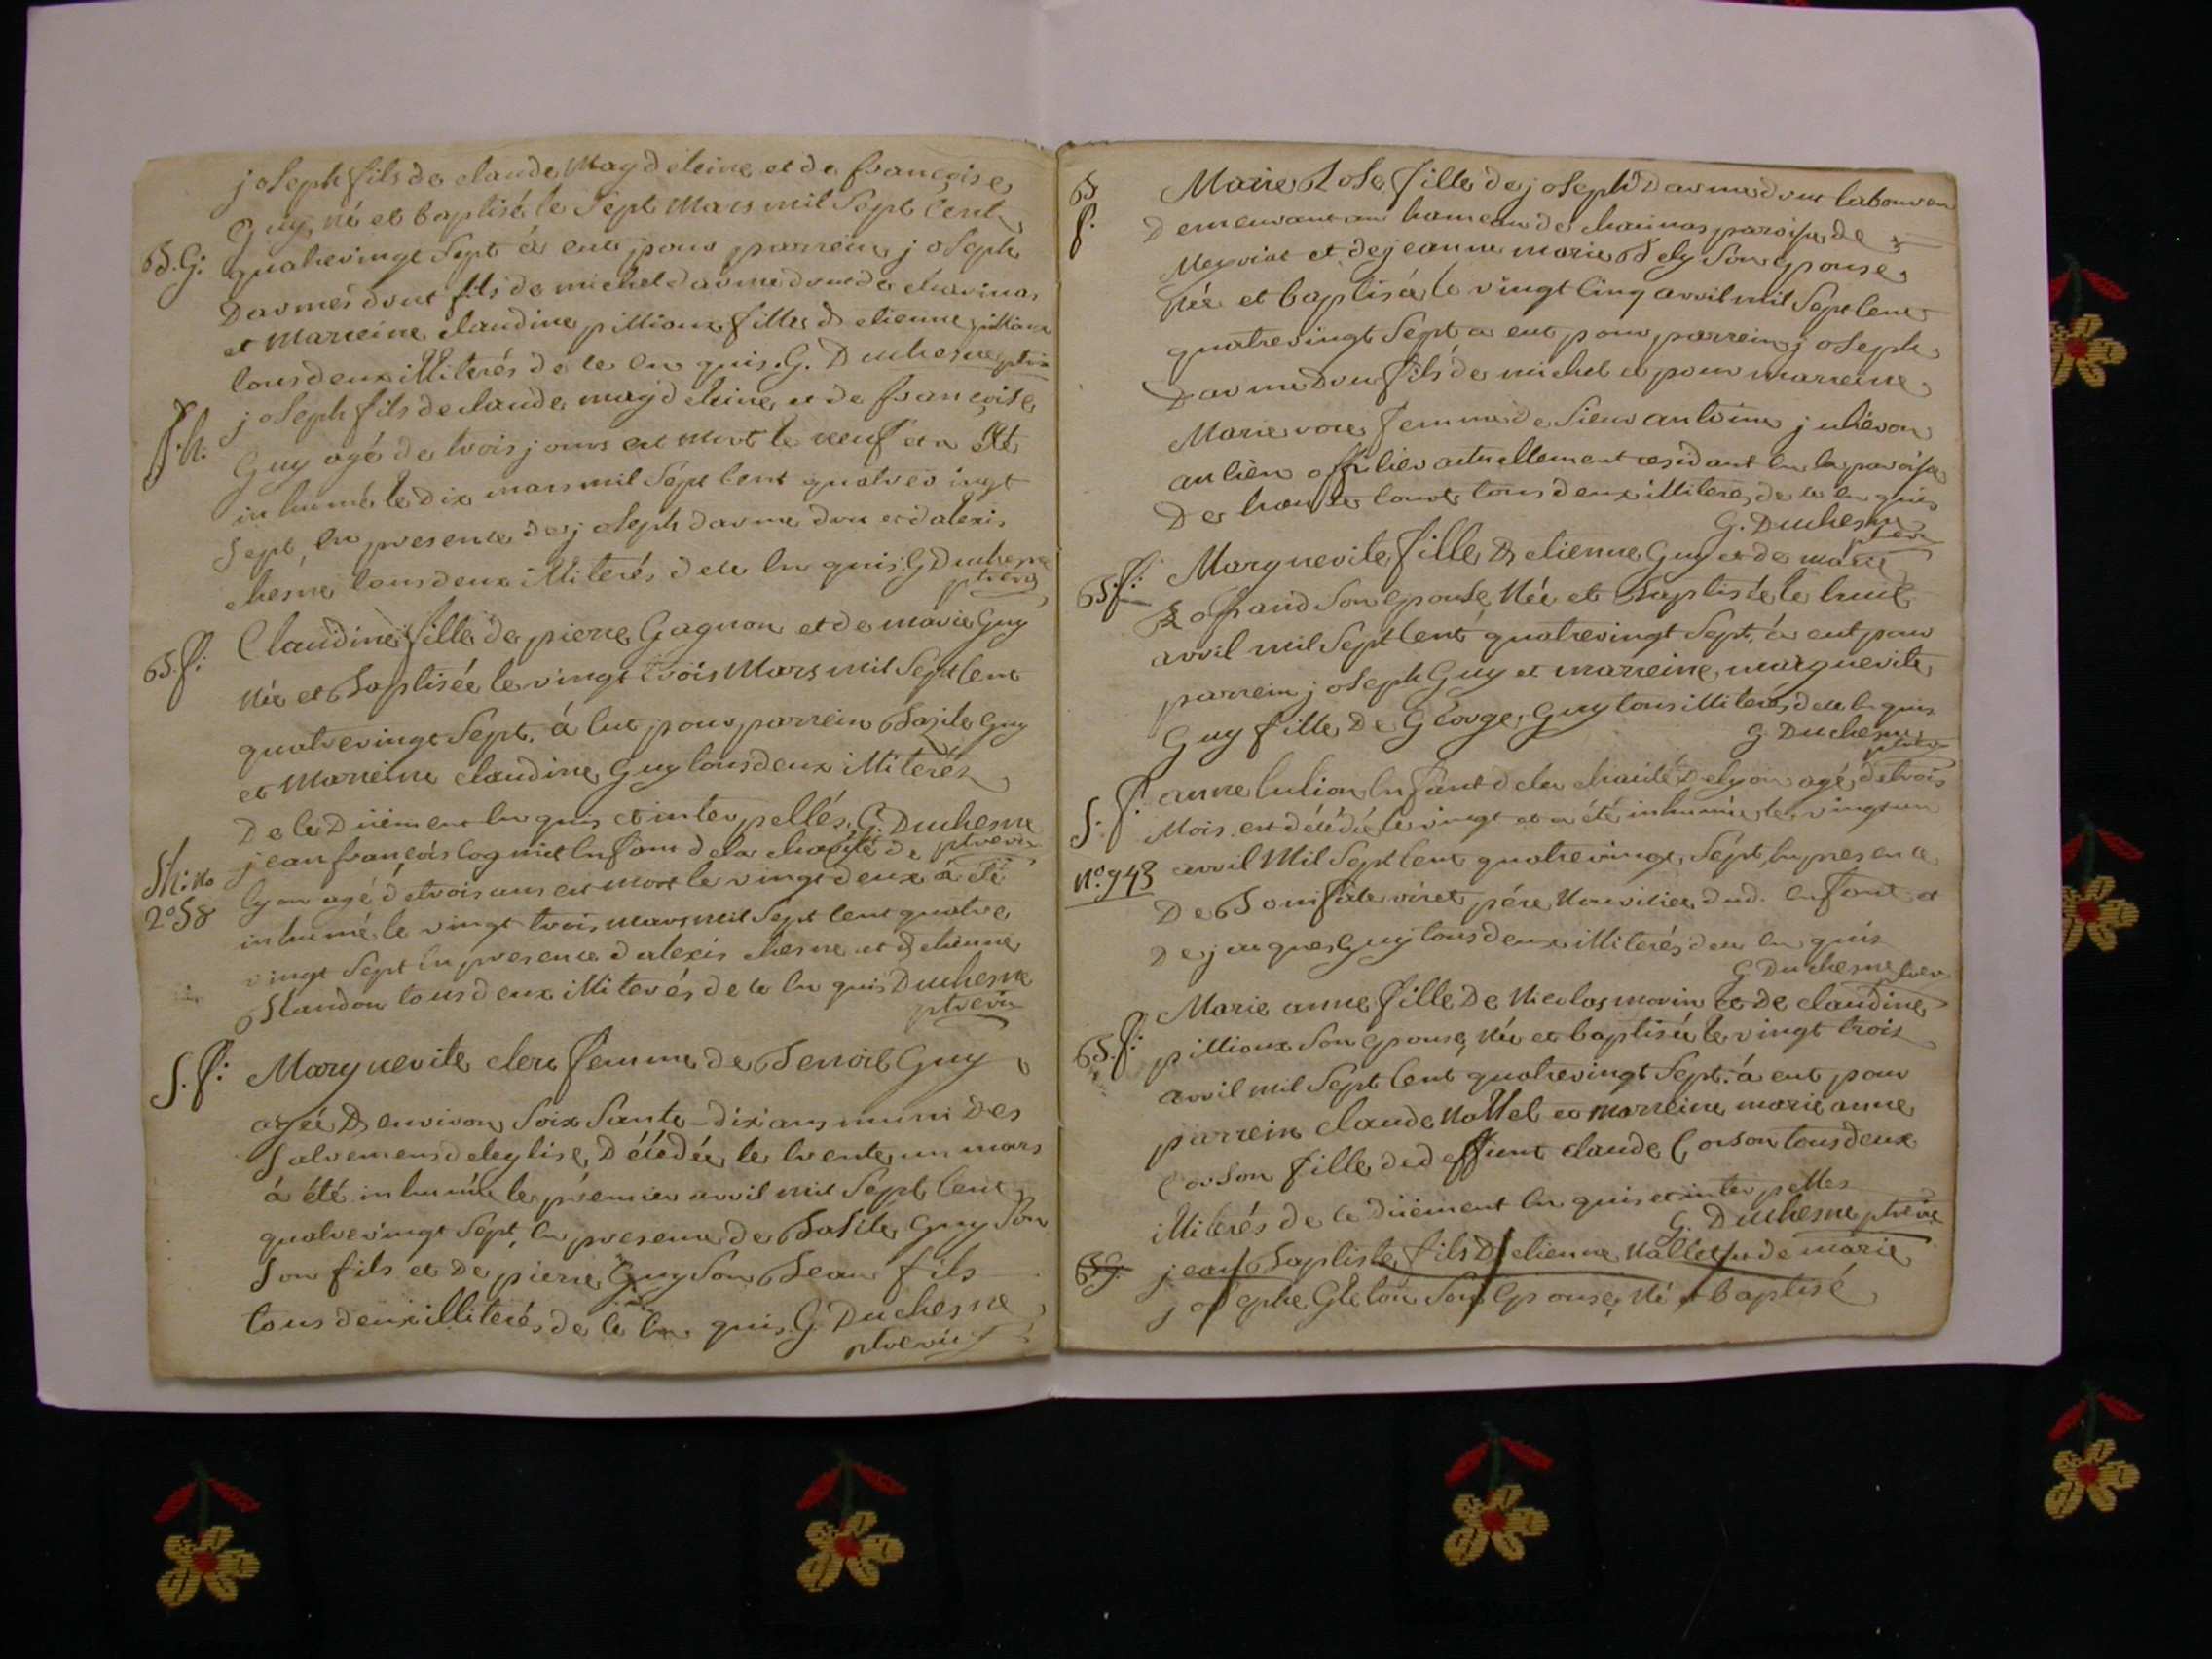 joseph fils de claude Magdeleine et de francoise
Guy, né et baptisé le sept Mars mil sept cent
B. G: quatrevingt sept à eut pour parrein joseph
Darmedrut fils de michel darmedrut de charinas
et Marreine claudine pillioux fille D etienne pillioux
tous deux illiterés de ce en quis. G. Duchesne ptre
joseph fils de claude magdeleine et de francoise
S. h. Guy agé de trois jours est mort le neuf et a été
inhumé le dix mars mil sept cent quatrevingt
sept, en presence de joseph darmedru et d alexis
chesne tous deux illiterés de ce en quis. G Duchesne
ptre
B. f: Claudine fille de pierre Gagnon et de marie Guy
née et Baptisée le vingt trois Mars mil sept cent
quatrevingt sept. à eut pour parrein Bazile Guy
et Marreine claudine Guy tous deux illiterés
De ce Duement en quis et interpellés. G. Duchesne
ptre
Sh: No jean françois cognit enfant de la charité de
2058 lyon agé de trois ans est mort le vingt deux à été
inhumé le vingt trois mars mil sept cent quatre
vingt sept en presence d alexis chesne et D etienne
Blandon tous deux illiterés de ce en quis Duchesne
ptre
S. f: Marguerite clere femme de Benoit Guy
agée D environ soixsante-dix ans muni des
salvemens deleglise, Décédée le trente un mars
à été inhumée le premier avril mil sept cent
quatrevingt sept, en presence de Basile Guy son
son fils et de pierre Guy son Beau fils
tous deux illiterés de ce en quis. G. Duchesne
ptre
B Marie Rose fille de joseph Darmedrut laboureur
f. Demeurant au hameau de charinas paroisse de
Meyriat et de jeanne marie Bely son epouse
née et baptisée le vingt cinq avril mil sept cent
quatrevingt sept a eut pour parrein joseph
Darmedru fils de michel et pour marreine
Marie femme de sieur antoine julieron
ancien officier actuellement residant en la paroisse
De haute court tous deux illiterés de ce en quis
G. Duchesne
ptre
B. f: Marguerite fille D etienne Guy et de marie
son epouse Née et Baptisée le huit
avril mil sept cent quatrevingt sept. à eut pour
parrein joseph Guy et marreine marguerite
Guy fille De George Guy tous illiterés de ce en quis
G. Duchesne
ptre
S. f: anne enfant de la charité De lyon agé de trois
Mois est décédée le vingt et a été inhumée le vingt un
No. 943 avril Mil sept cent quatrevingt sept, en presence
De Boniface viret père Nouricier dud. enfant et
De jacques Guy tous deux illiterés de ce en quis
G Duchesne ptre
Marie anne fille De Nicolas morin et De claudine
B. f: pillioux son epouse, née et baptisée le vingt trois
avril mil sept cent quatrevingt sept. à eut pour
parrein claude Nallet et marreine marie anne
Corson fille de deffunt claude Corson tous deux
illiterés de ce duement en quis et interpelles
G. Duchesne ptre
BG. jean Baptiste fils D etienne Nallet et de marie
josephe son Epouse, Né et baptisé